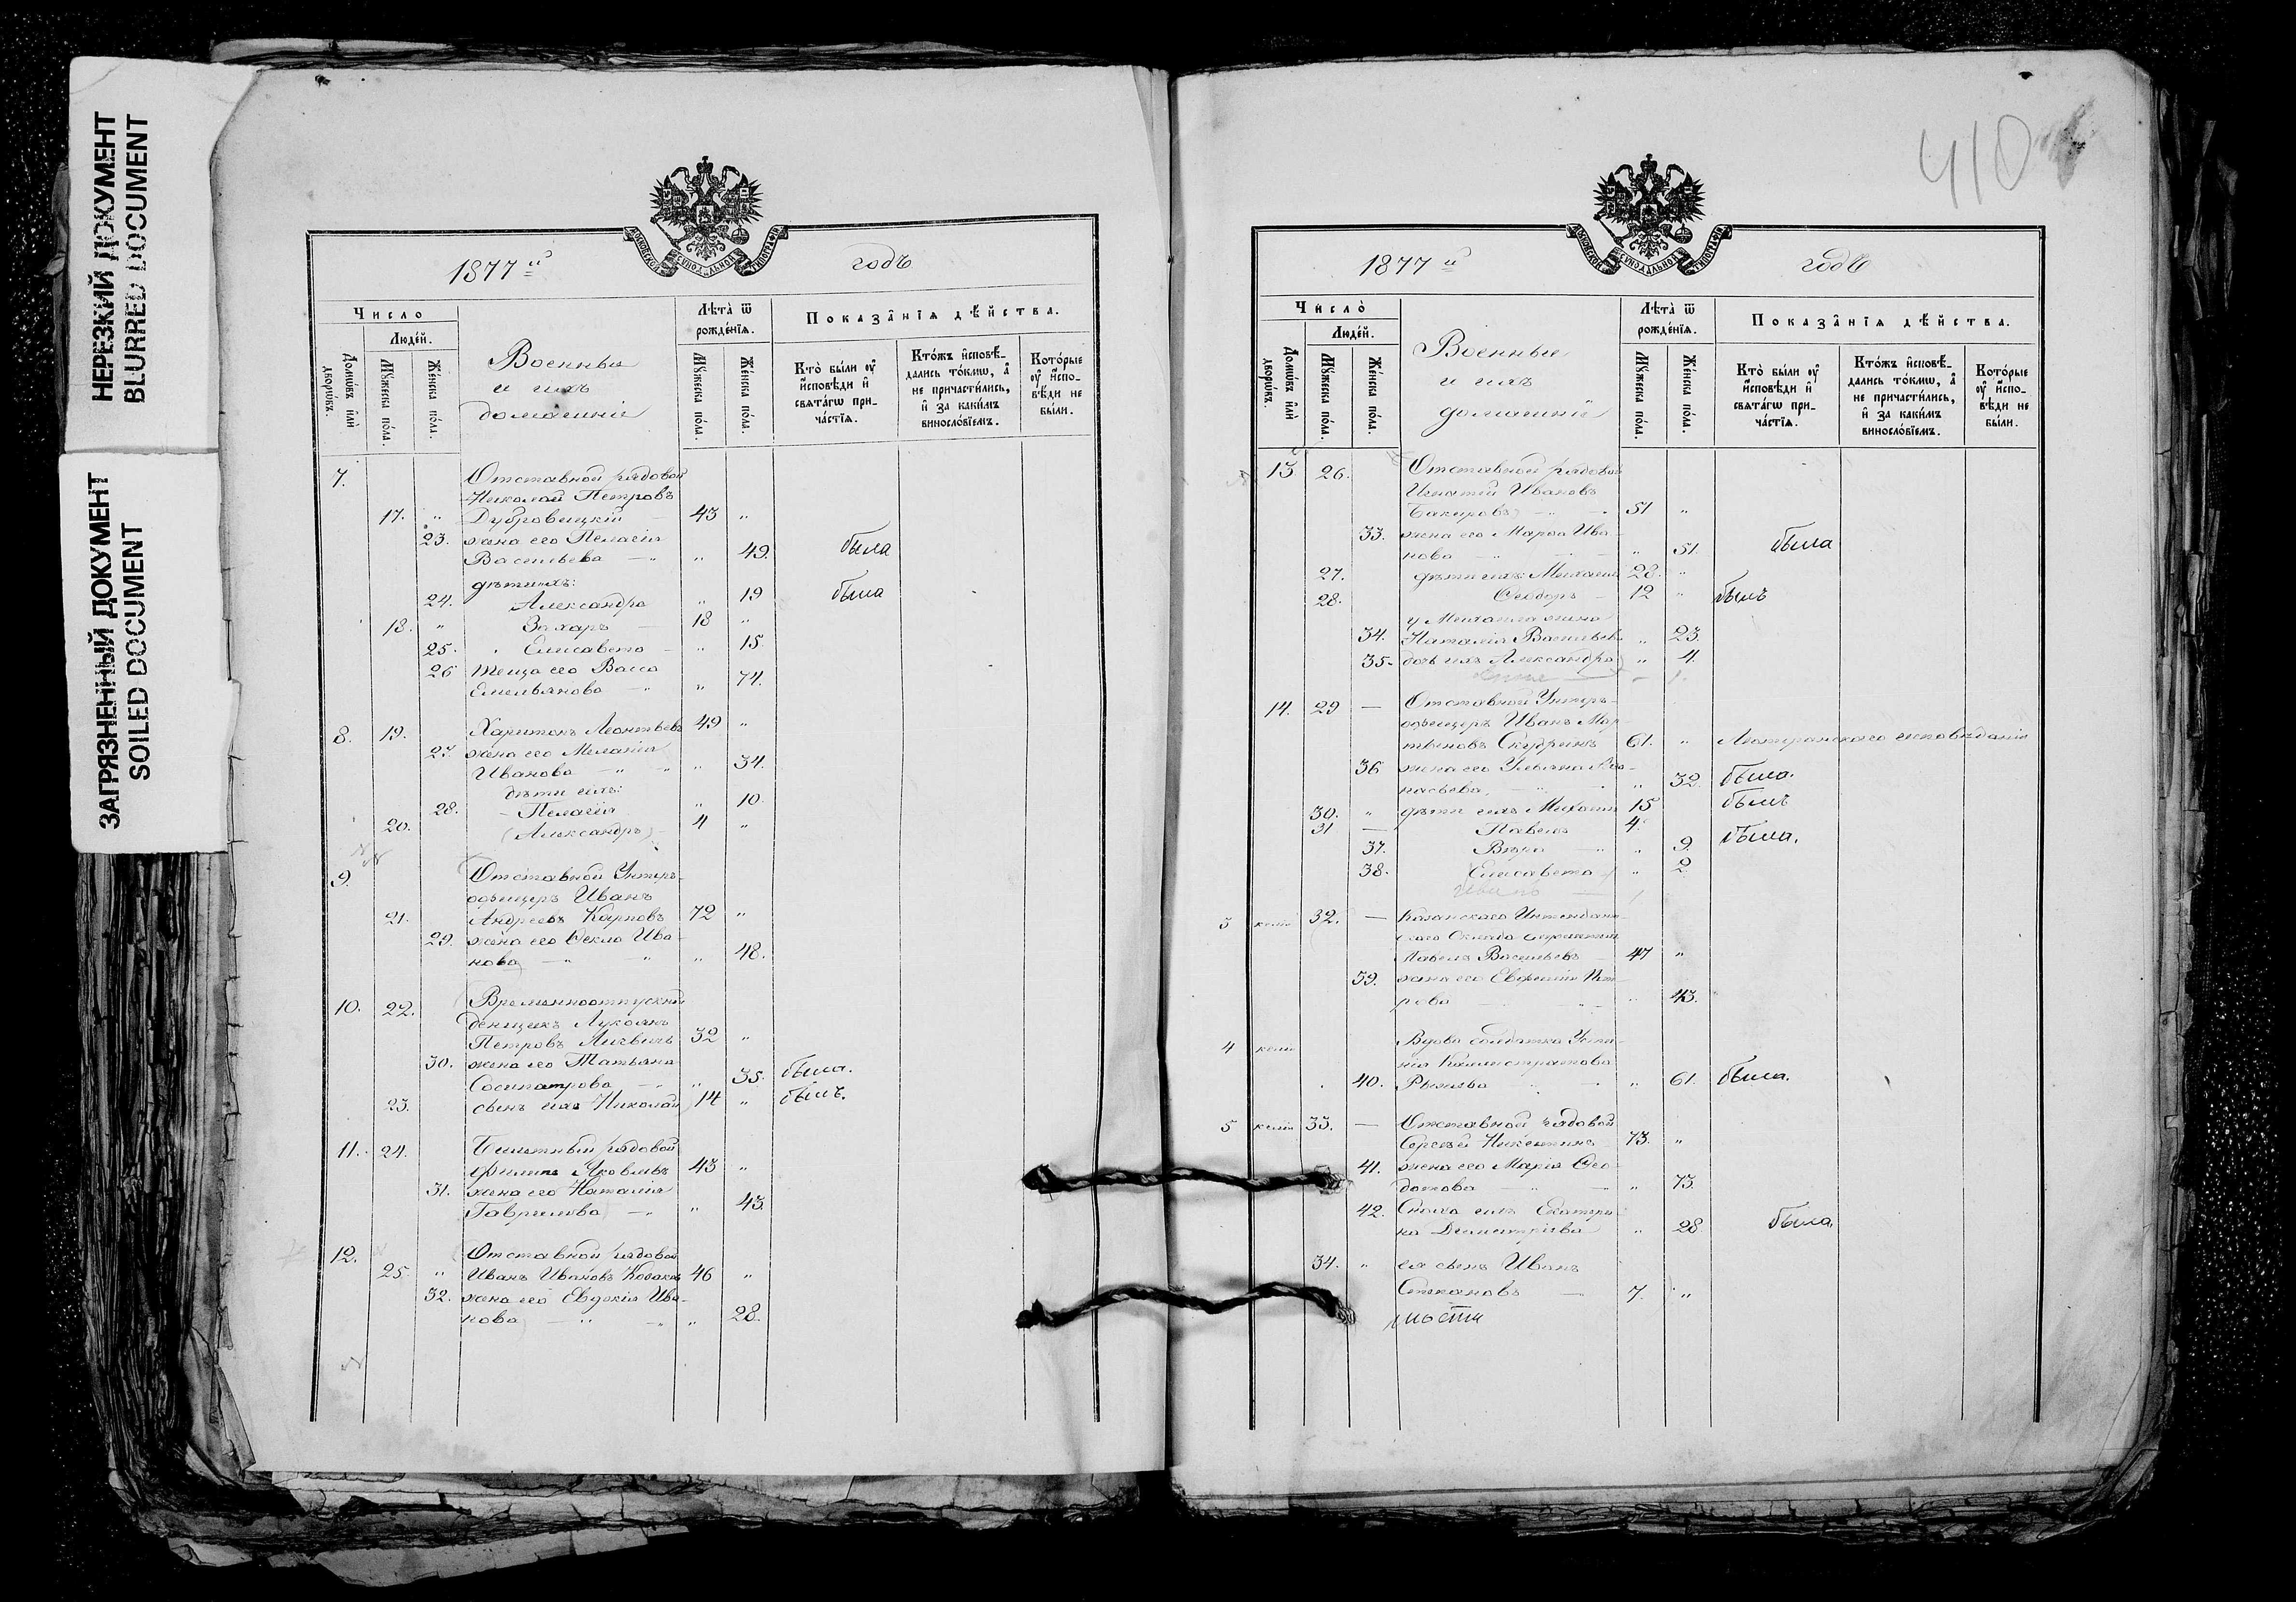 НЕРЕЗКИЙ ДОКУМЕНТ
BLURRED DOCUMENT
ЗАГРЯЗНЕННЫЙ ДОКУМЕНТ
SOILED DOCUMENT
МОСКОВСКОЙ СѴНОДАЛЬНОЙ ТИПОГРАФІИ
1877й годъ
Число
Людей.
Домѡвъ или дворѡвъ.
Мꙋжеска пола.
Женска пола.
Военные
и ихъ
домашніе
Лѣта ѿ рожденїѧ.
Мꙋжеска пола.
Женска пола.
Показанїѧ дѣйства.
Кто были ᲂу исповѣди и свѧтагѡ причастїѧ.
Ктожъ исповѣдались токмѡ, а не причастились, и за какимъ винословїемъ.
Которые ᲂу исповѣди не были.
7. Отставной рядовой
Николай Петровъ
17. „ Дубровицкій — 43 „
23. жена его Пелагія
Васильева — „ „ 49. была
дѣти ихъ:
24. Александра „ 19 была
18. „ Захаръ — 18 „
25. „ Елисавета — „ 15
26 теща его Васса
Емельянова — „ „ 74.
8. 19. Харитонъ Леонтьевъ 49 „
27. жена его Меланія
Иванова — „ „ „ 34.
дѣти ихъ:
28. – Пелагія „ 10.
20. (Александръ) – 4 „
9. Отставной Унтеръ-
офицеръ Иванъ
21. Андреевъ Карповъ 72 „
29. жена его Ѳекла Ива-
нова — „ „ „ 48.
10. 22. Временноотпускной
денщикъ Лукоянъ
Петровъ 32 „
30. жена его Татьяна
Сосипатрова — „ „ 35. была.
23. сынъ ихъ Николай 14 „ былъ.
11. 24. Билетный рядовой
Филипъ Яковлевъ 43 „
31. жена его Наталія
Гаврилова — „ „ 43.
12. Отставной рядовой
25. „ Иванъ Ивановъ 46 „
32. жена его Евдокія Ива-
нова — „ „ „ 28.
410
МОСКОВСКОЙ СѴНОДАЛЬНОЙ ТИПОГРАФІИ
1877й годъ
Число
Людей.
Домѡвъ или дворѡвъ.
Мꙋжеска пола.
Женска пола.
Военные
и ихъ
домашніе
Лѣта ѿ рожденїѧ.
Мꙋжеска пола.
Женска пола.
Показанїѧ дѣйства.
Кто были ᲂу исповѣди и свѧтагѡ причастїѧ.
Ктожъ исповѣдались токмѡ, а не причастились, и за какимъ винословїемъ.
Которые ᲂу исповѣди не были.
13 26. Отставной рядовой
Игнатій Ивановъ
51 „
33. жена его Марѳа Ива-
нова — „ „ 51. была
27. дѣти ихъ: Михаилъ 28. „
28. Ѳеодоръ – 12 „ былъ
у Михаила жена
34. Наталія Васильева „ 23.
35. дочь ихъ Александра „ 4.
14. 29 — Отставной Унтеръ-
офицеръ Иванъ Мар-
тыновъ 61. „ Лютеранскаго исповѣданія
36 жена его Ульяна Аѳа-
насьева, — „ „ 32. была.
30. „ дѣти ихъ Михаилъ 15 былъ
31 — Павелъ 4.
37. Вѣра — „ „ 9. была.
38. Елисавета „ 2
Иванъ
3 келія 32. — Казанскаго Интендант-
скаго Склада
Павелъ Васильевъ – 47 „
39. жена его Евфимія Пет-
рова — „ „ 43.
4 келія Вдова солдатка Усти-
нія Каллистратова
40. „ 61. была.
5 келія 33. — Отставной рядовой
Сергѣй Никитинъ 73. „
41. жена его Марія Ѳео-
дотова — „ „ 73.
42. Сноха ихъ Екатери-
на Димитріева „ 28 была
34. „ ея сынъ Иванъ
Степановъ — 7. „